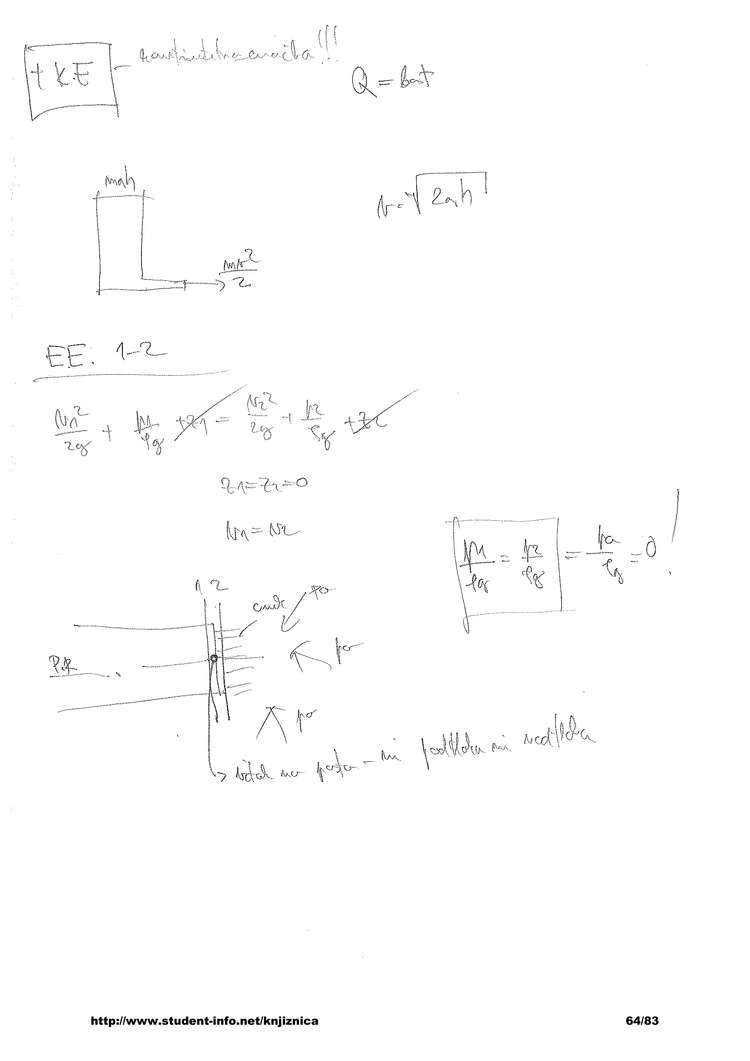 + KE - kontinuitetna enačba!!!
Q = konst
mgh
v = √2gh
mv²/2
EE. 1-2
v₁²/2g + p₁/ρg + z₁ = v₂²/2g + p₂/ρg + z₂
z₁ = z₂ = 0
v₁ = v₂
p₁/ρg = p₂/ρg = pa/ρg = 0 !
1 2
po
po
po
ni podtlaka ni nadtlaka
http://www.student-info.net/knjiznica
64/83